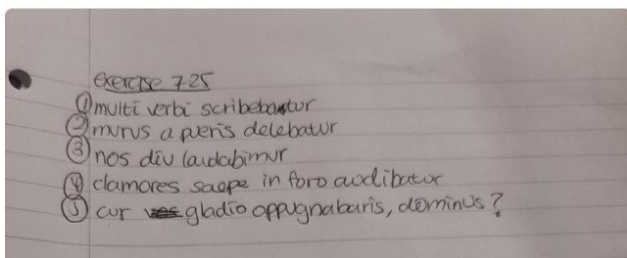 exercise 7.25
① multi verbi scribebantur
② murus a pueris delebatur
③ nos diu laudabimur
④ clamores saepe in foro audibatur
⑤ cur gladio oppugnabaris, dominus?